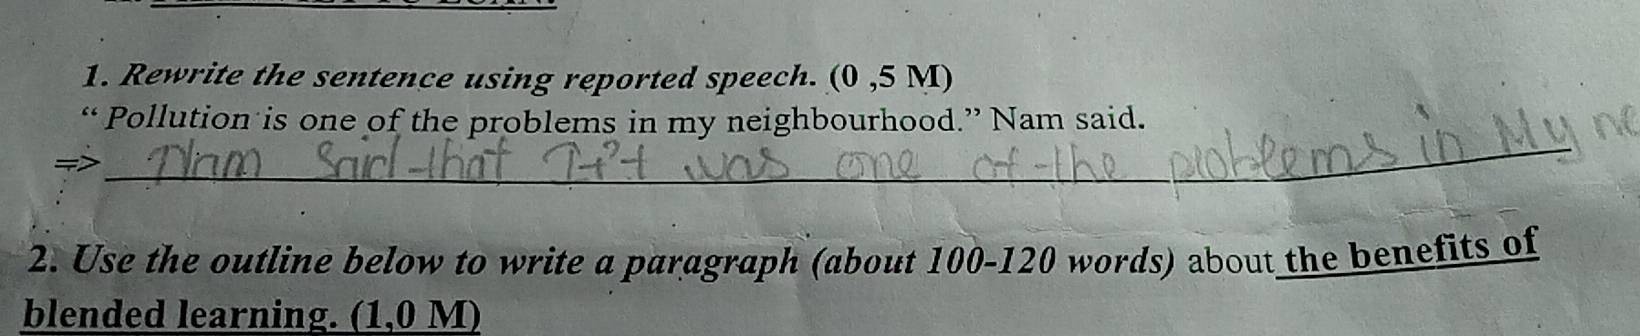 1. Rewrite the sentence using reported speech. (0 ,5 M)
“ Pollution is one of the problems in my neighbourhood.” Nam said.
=> Nam Said that was one of the problems in My ne
2. Use the outline below to write a paragraph (about 100-120 words) about the benefits of
blended learning. (1,0 M)